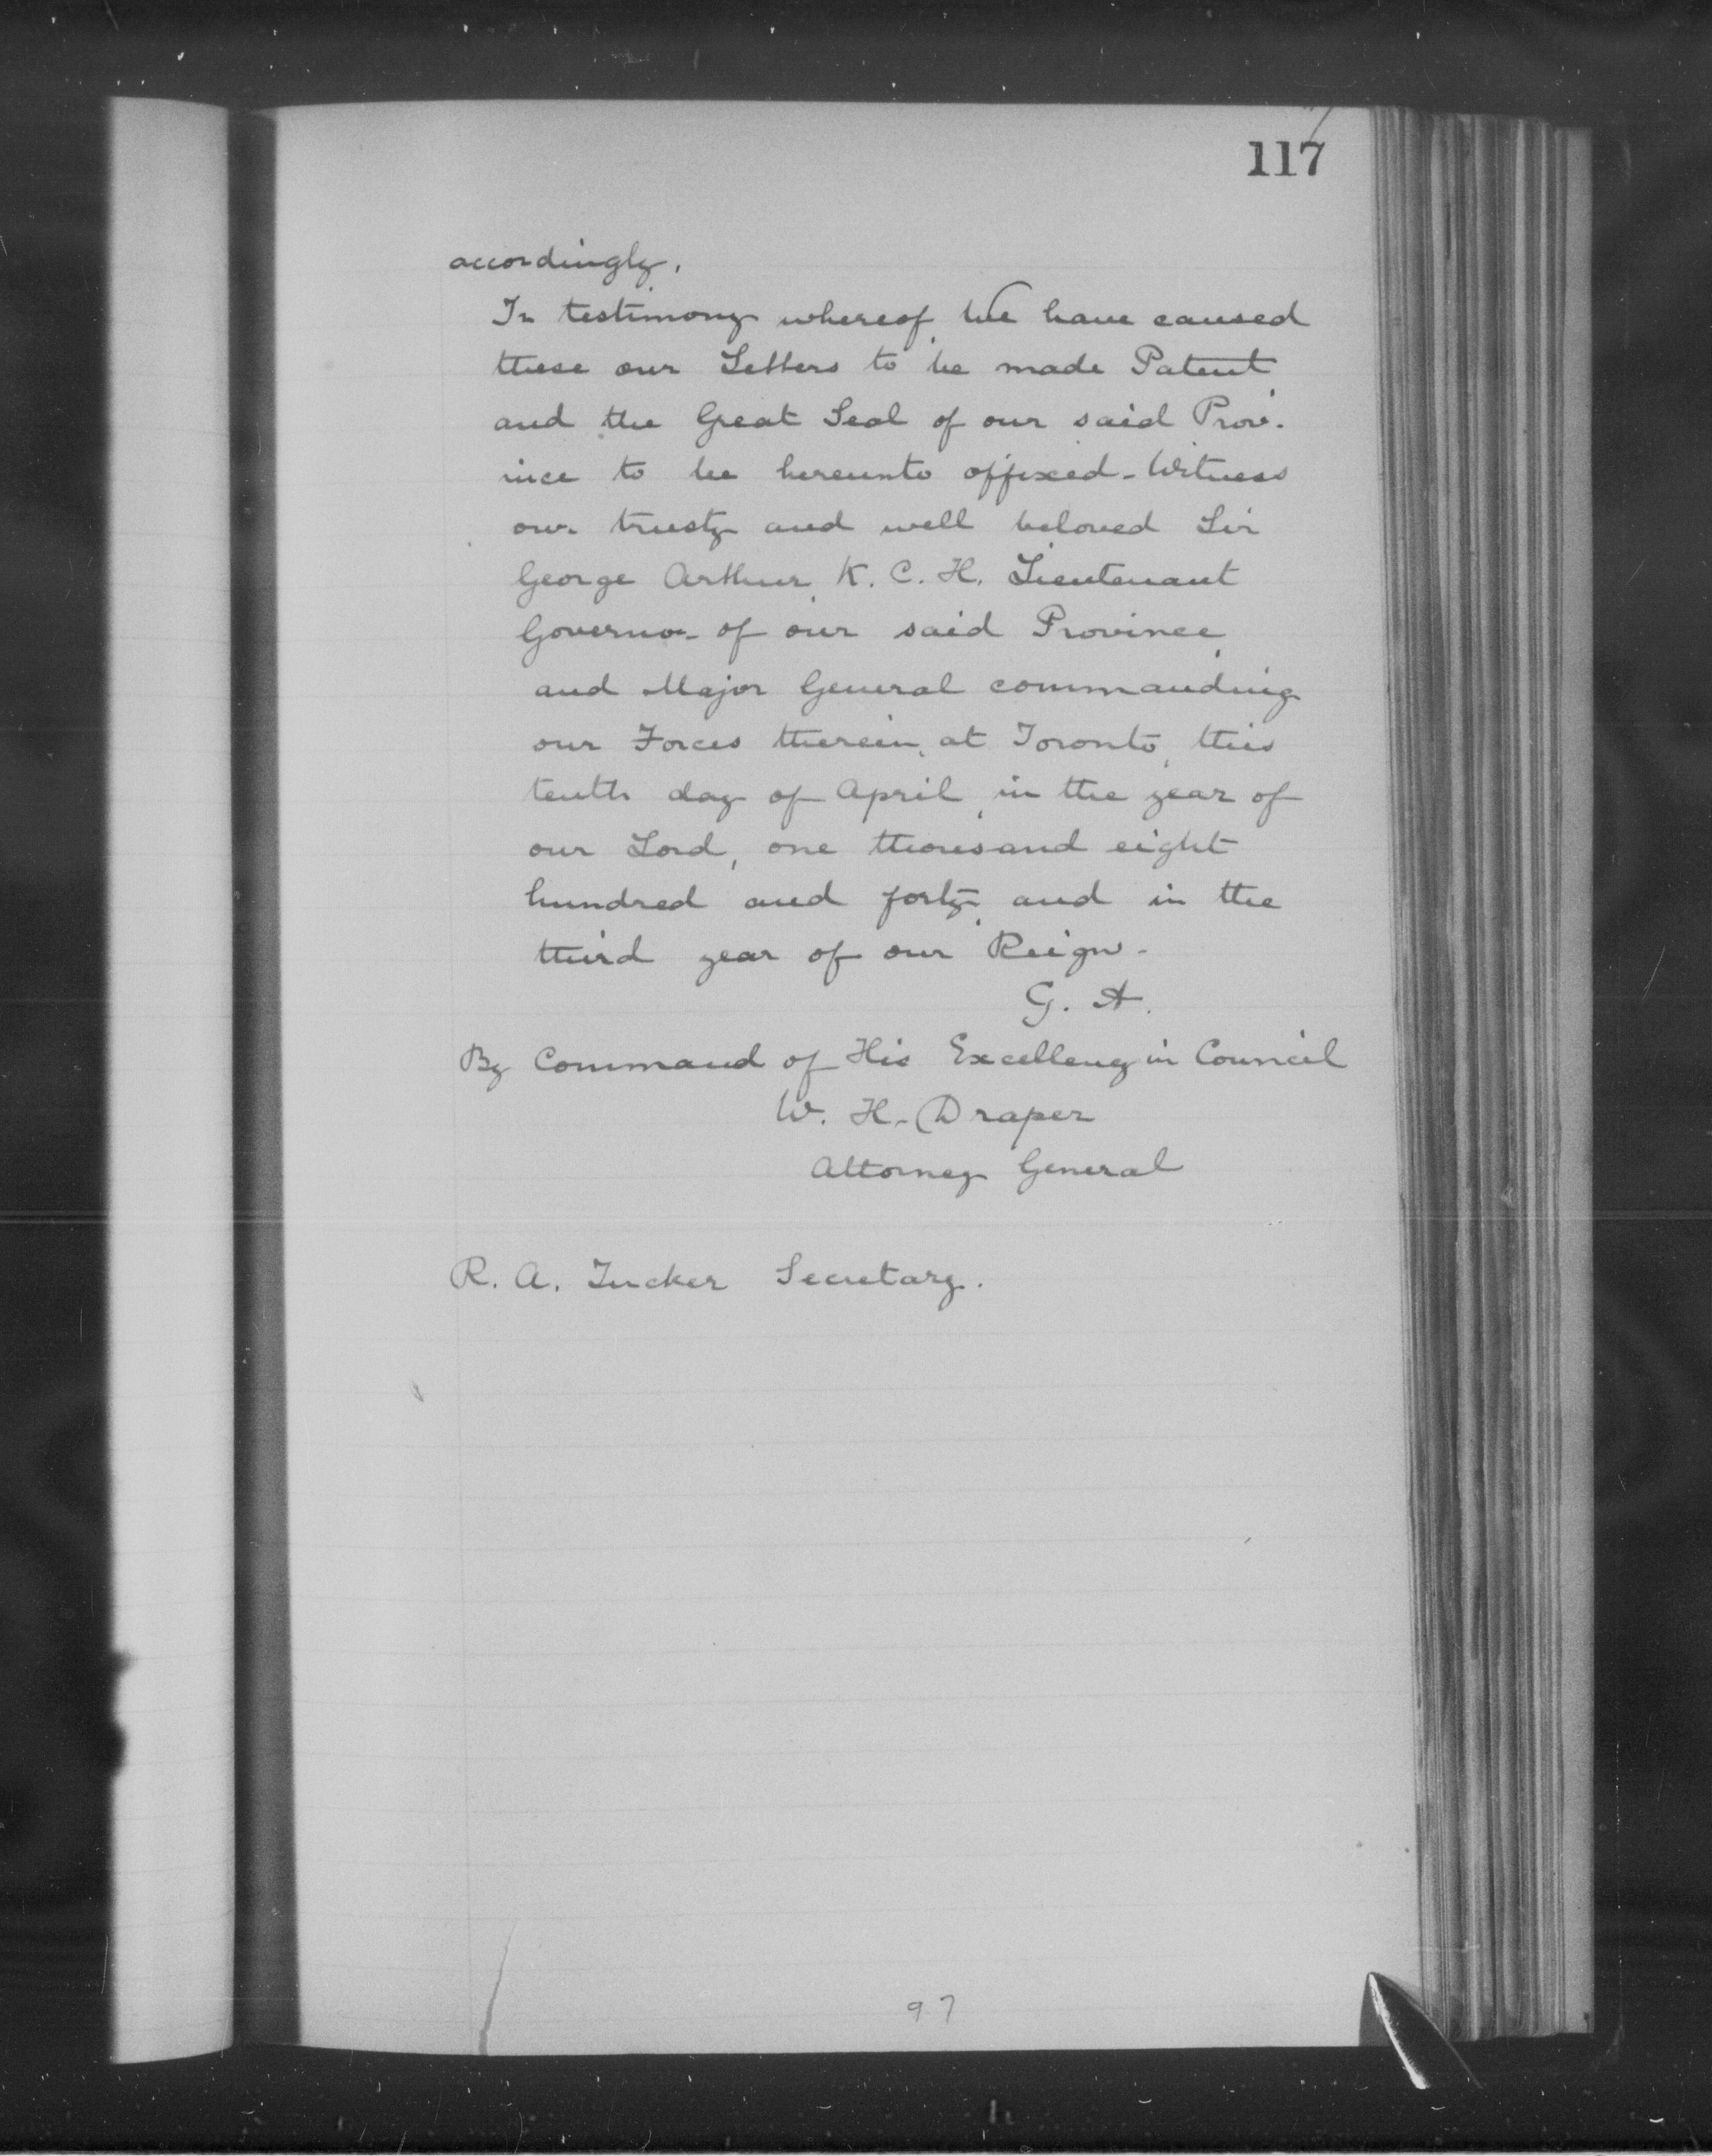 117
accordingly.
In testimony whereof, We have caused
these our Letters to be made Patent,
and the Great Seal of our said Prov-
ince to be hereunto affixed - Witness
our trusty and well beloved Sir
George Arthur, K. C. H. Lieutenant
Governor of our said Province,
and Major General commanding
our Forces therein, at Toronto, this
tenth day of April, in the year of
our Lord, one thousand eight
hundred and forty, and in the
third year of our Reign -
G. A.
By Command of His Excellency in Council
W. H. Draper
Attorney General
R. A. Tucker Secretary.
97